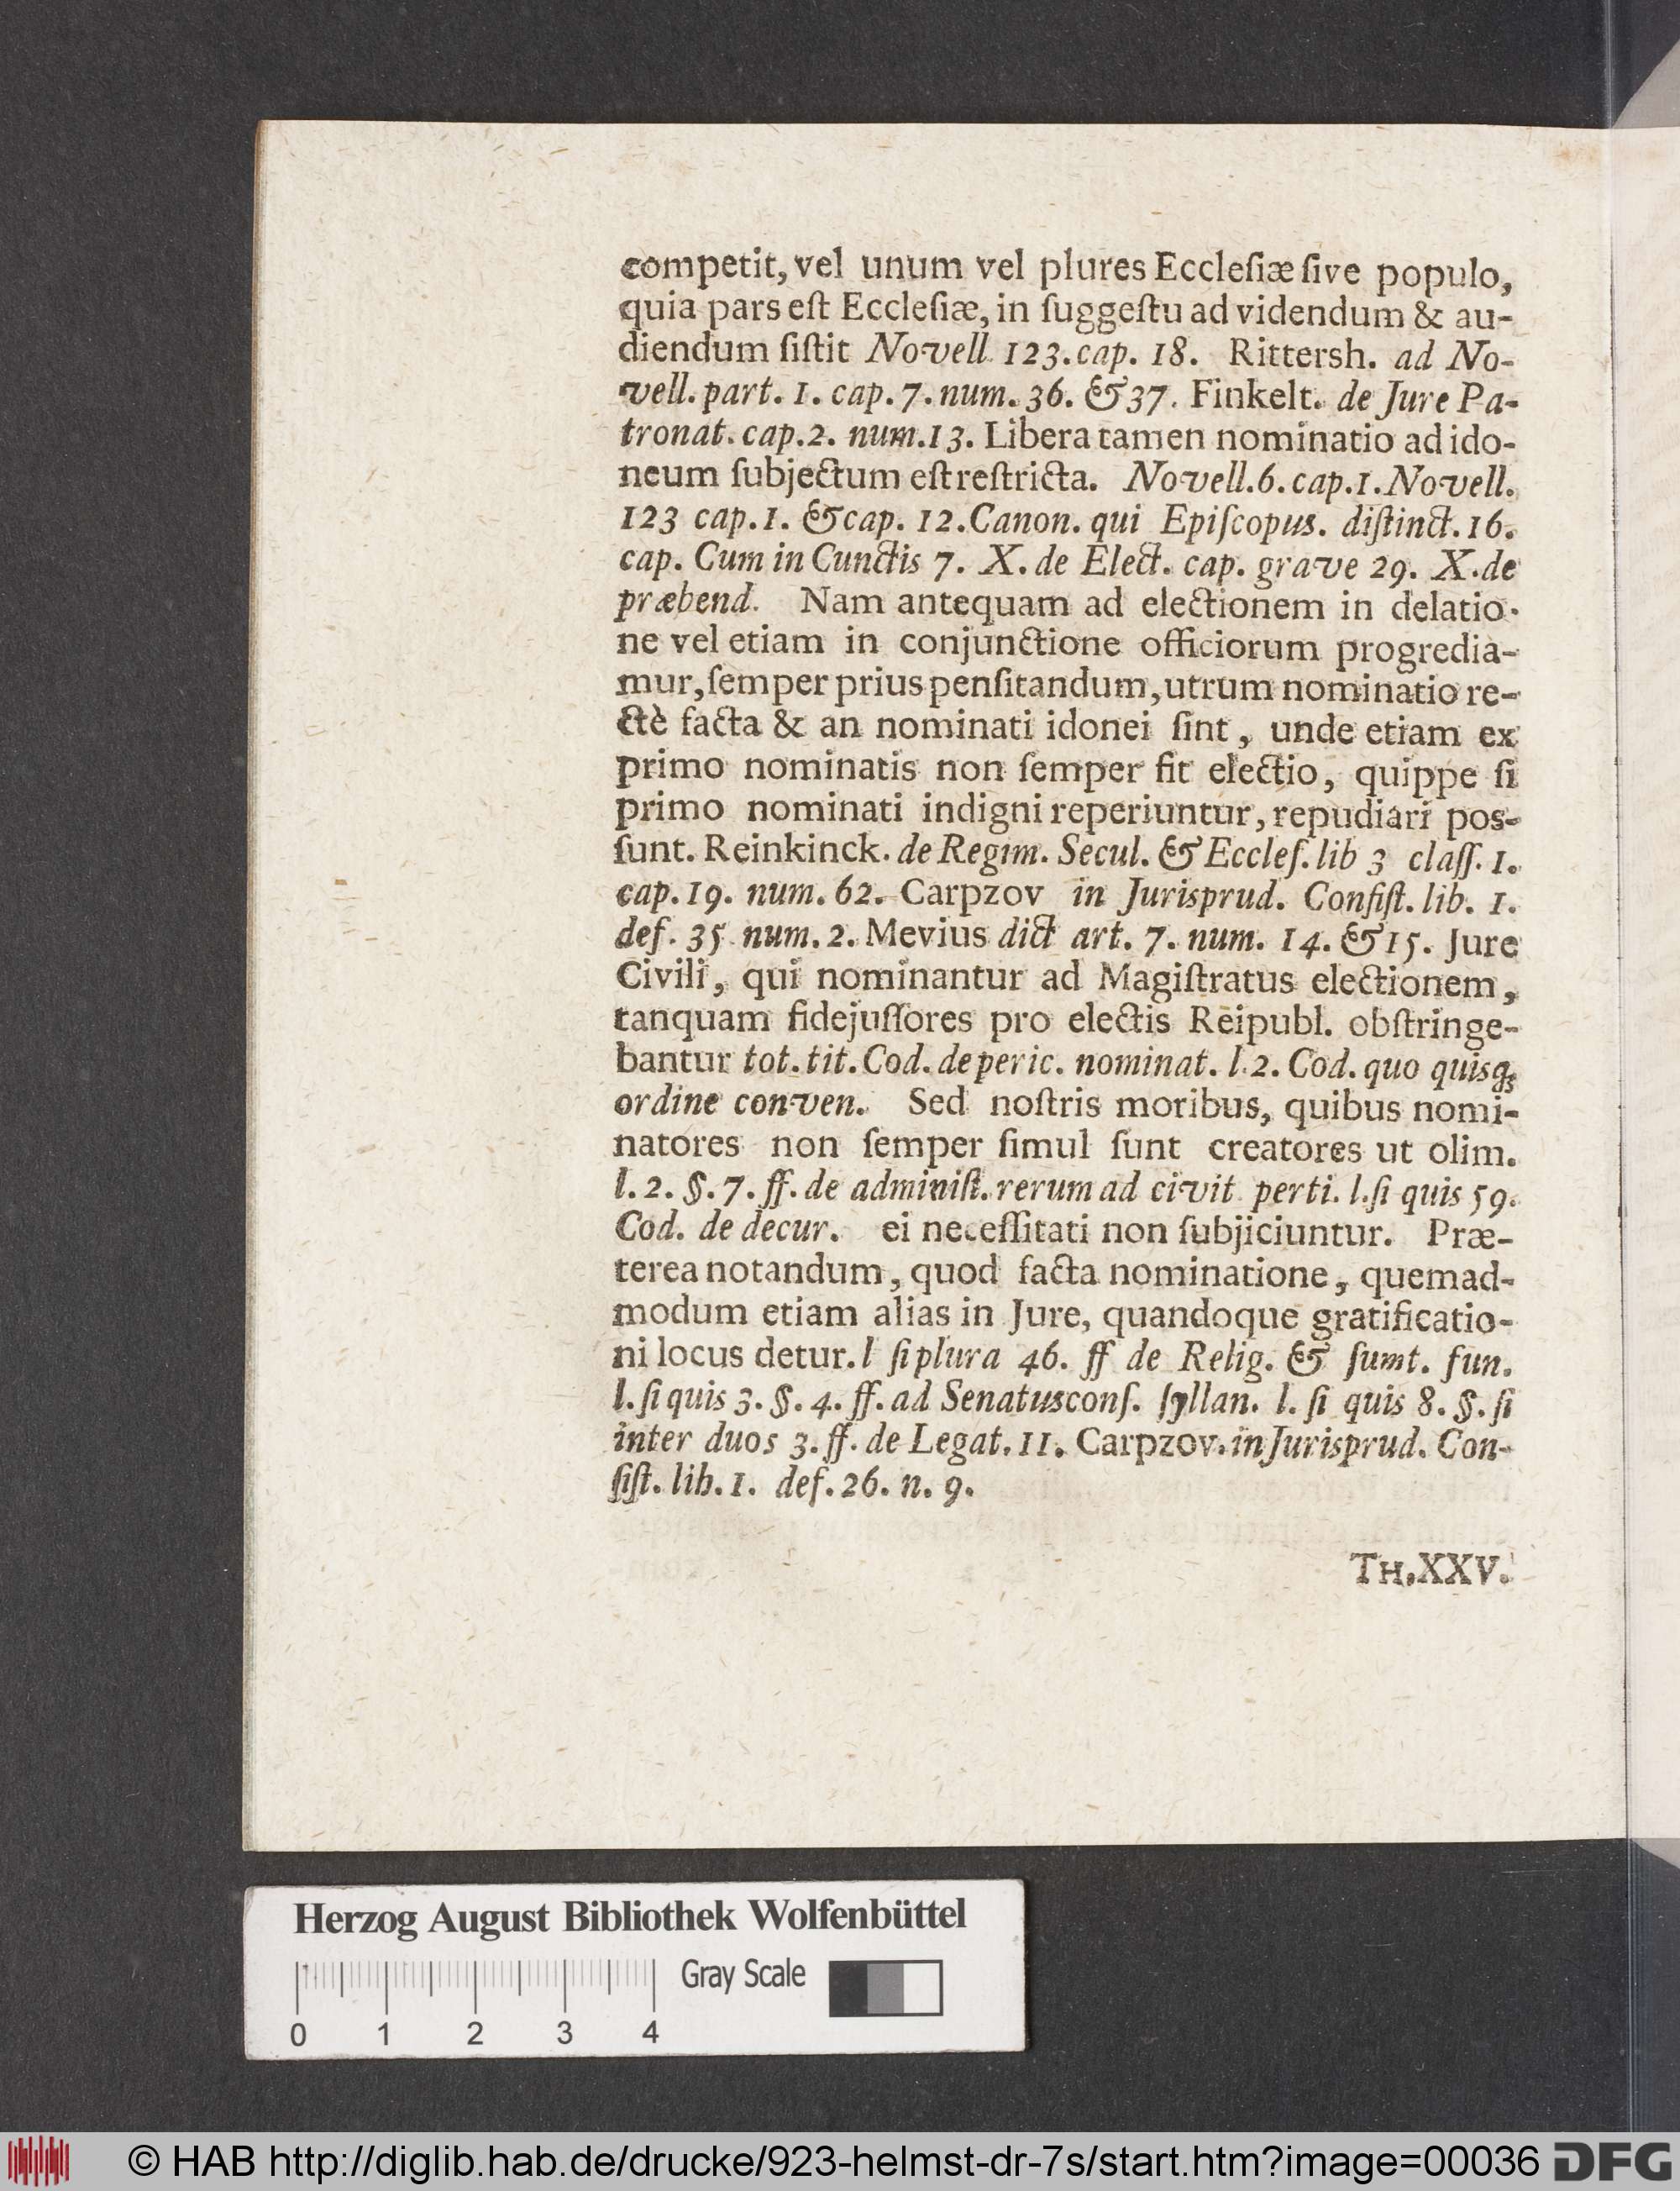 competit, vel unum vel plures Eccleſiæ ſive populo,
quia pars eſt Eccleſiæ, in ſuggeſtu ad videndum & au-
diendum ſiſtit Novell. 123. cap. 18. Rittersh. ad No-
vell. part. 1. cap. 7. num. 36. & 37. Finkelt. de Jure Pa-
tronat. cap. 2. num. 13. Libera tamen nominatio ad ido-
neum ſubjectum eſt reſtricta. Novell. 6. cap. 1. Novell.
123 cap. 1. & cap. 12. Canon. qui Epiſcopus. diſtinct. 16.
cap. Cum in Cunctis 7. X. de Elect. cap. grave 29. X. de
præbend. Nam antequam ad electionem in delatio-
ne vel etiam in conjunctione officiorum progredia-
mur, ſemper prius penſitandum, utrum nominatio re-
ctè facta & an nominati idonei ſint, unde etiam ex
primo nominatis non ſemper fit electio, quippe ſi
primo nominati indigni reperiuntur, repudiari pos-
ſunt. Reinkinck. de Regim. Secul. & Eccleſ. lib 3 claſſ. 1.
cap. 19. num. 62. Carpzov in Jurisprud. Conſiſt. lib. 1.
def. 35 num. 2. Mevius dict art. 7. num. 14. & 15. Jure
Civili, qui nominantur ad Magiſtratus electionem,
tanquam fidejuſſores pro electis Reipubl. obſtringe-
bantur tot. tit. Cod. de peric. nominat. l. 2. Cod. quo quisq;
ordine conven. Sed noſtris moribus, quibus nomi-
natores non ſemper ſimul ſunt creatores ut olim.
l. 2. §. 7. ff. de adminiſt. rerum ad civit perti. l. ſi quis 59.
Cod. de decur. ei neceſſitati non ſubjiciuntur. Præ-
terea notandum, quod facta nominatione, quemad-
modum etiam alias in Jure, quandoque gratificatio-
ni locus detur. l ſi plura 46. ff de Relig. & ſumt. fun.
l. ſi quis 3. §. 4. ff. ad Senatusconſ. ſyllan. l. ſi quis 8. §. ſi
inter duos 3. ff. de Legat. 11. Carpzov. in Jurisprud. Con-
ſiſt. lib. 1. def. 26. n. 9.
TH. XXV.
Herzog August Bibliothek Wolfenbüttel
Gray Scale
0 1 2 3 4
© HAB http://diglib.hab.de/drucke/923-helmst-dr-7s/start.htm?image=00036 DFG